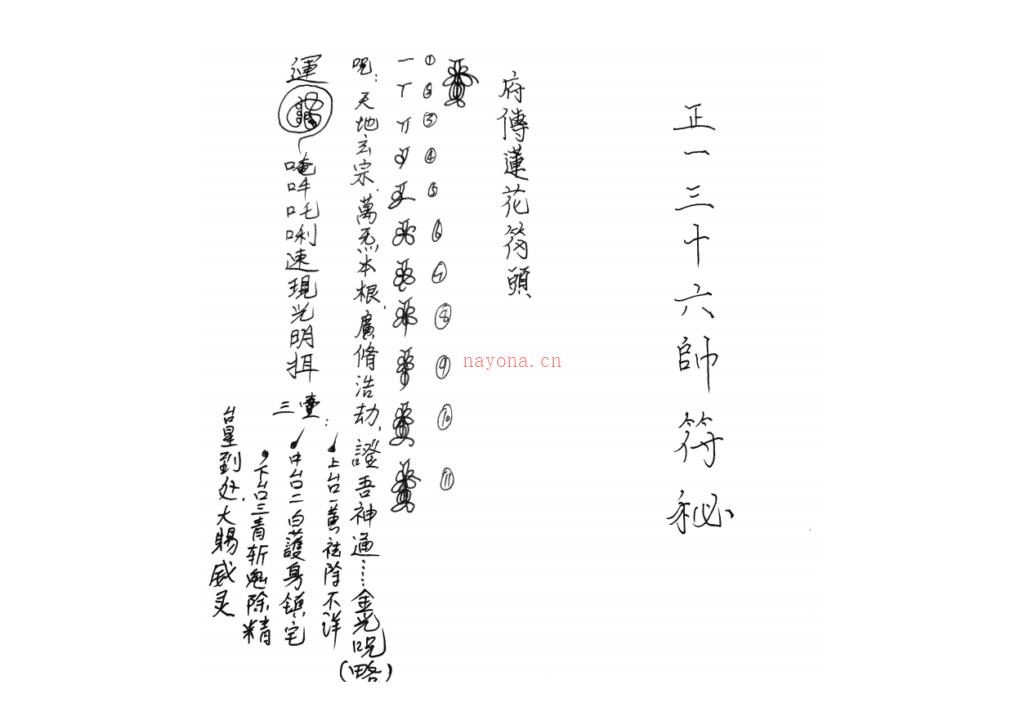 正一三十六帥符秘
府傳蓮花符頭
① ② ③ ④ ⑤ ⑥ ⑦ ⑧ ⑨ ⑩ ⑪
呪：天地玄宗，萬炁本根，廣脩浩劫，證吾神通……金光呪（略）
運
唵吽吒唎速現光明揖
三臺：
上台一黃祛除不祥
中台二白護身鎮宅
下台三青斬鬼除精
台星到处，大賜威灵
nayona.cn